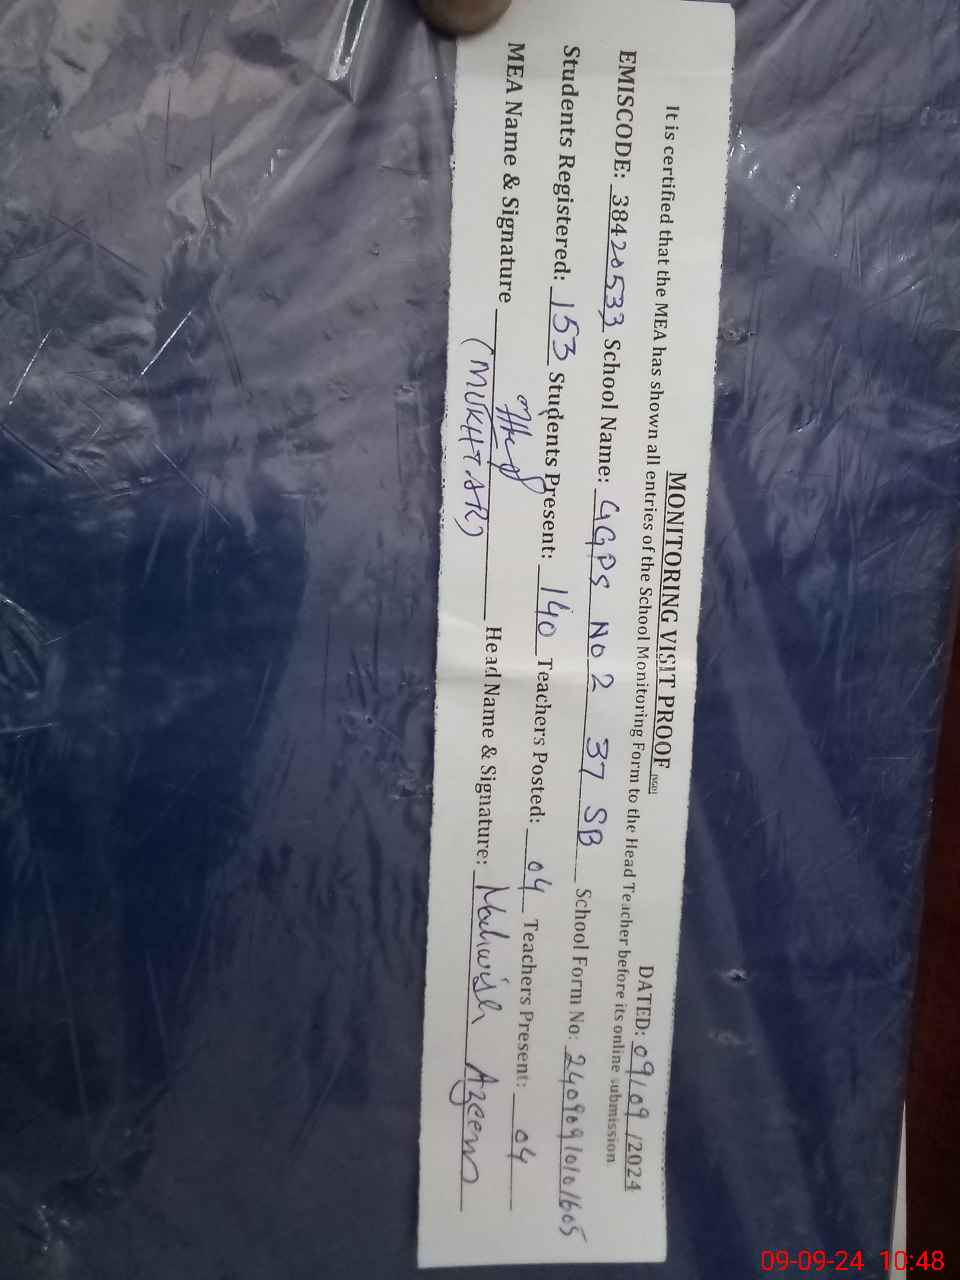 MONITORING VISIT PROOF
DATED: 09/09/2024
It is certified that the MEA has shown all entries of the School Monitoring Form to the Head Teacher before its online submission
EMISCODE: 38420533 School Name: GGPS No 2 37 SB School Form No: 24090910101605
Students Registered: 153 Students Present: 140 Teachers Posted: 04 Teachers Present: 04
MEA Name & Signature (MUKHTAR) Head Name & Signature: Mahwish Azeem
09-09-24 10:48